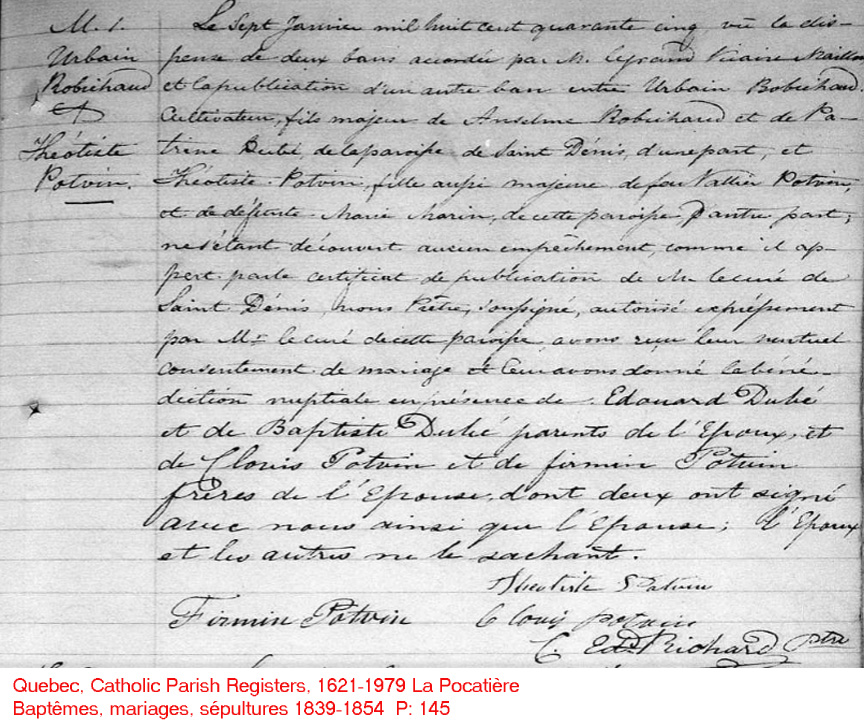 M. 1.
Urbain
Robichaud
&
Théotiste
Potvin.
Le Sept Janvier mil huit cent quarante cinq, vû la dis-
pense de deux bans accordée par M. le grand Vicaire Mailloux
et la publication d'un autre ban entre Urbain Robichaud.
Cultivateur, fils majeur de Anselme Robichaud et de Pa-
trine Dubé, de la paroisse de Saint Dénis, d'une part; et
Théotiste Potvin, fille aussi majeure de feu Vallier Potvin,
et de défunte Marie Marin, de cette paroisse, d'autre part;
ne s'étant découvert aucun empêchement, comme il ap-
pert par le certificat de publication de Mr le curé de
Saint Dénis, nous Prêtre, soussigné, autorisé expressément
par Mr le curé de cette paroisse, avons reçu leur mutuel
consentement de mariage et leur avons donné la béné-
diction nuptiale en présence de Edouard Dubé
et de Baptiste Dubé parents de l'Epoux, et
de Clovis Potvin et de firmin Potvin
frères de l'Epouse, dont deux ont signé
avec nous ainsi que l'Epouse; l'Epoux
et les autres ne le sachant.
Théotiste Potvin
Firmin Potvin Clouis potvin
C. Edd Richard Ptre
Quebec, Catholic Parish Registers, 1621-1979 La Pocatière
Baptêmes, mariages, sépultures 1839-1854 P: 145